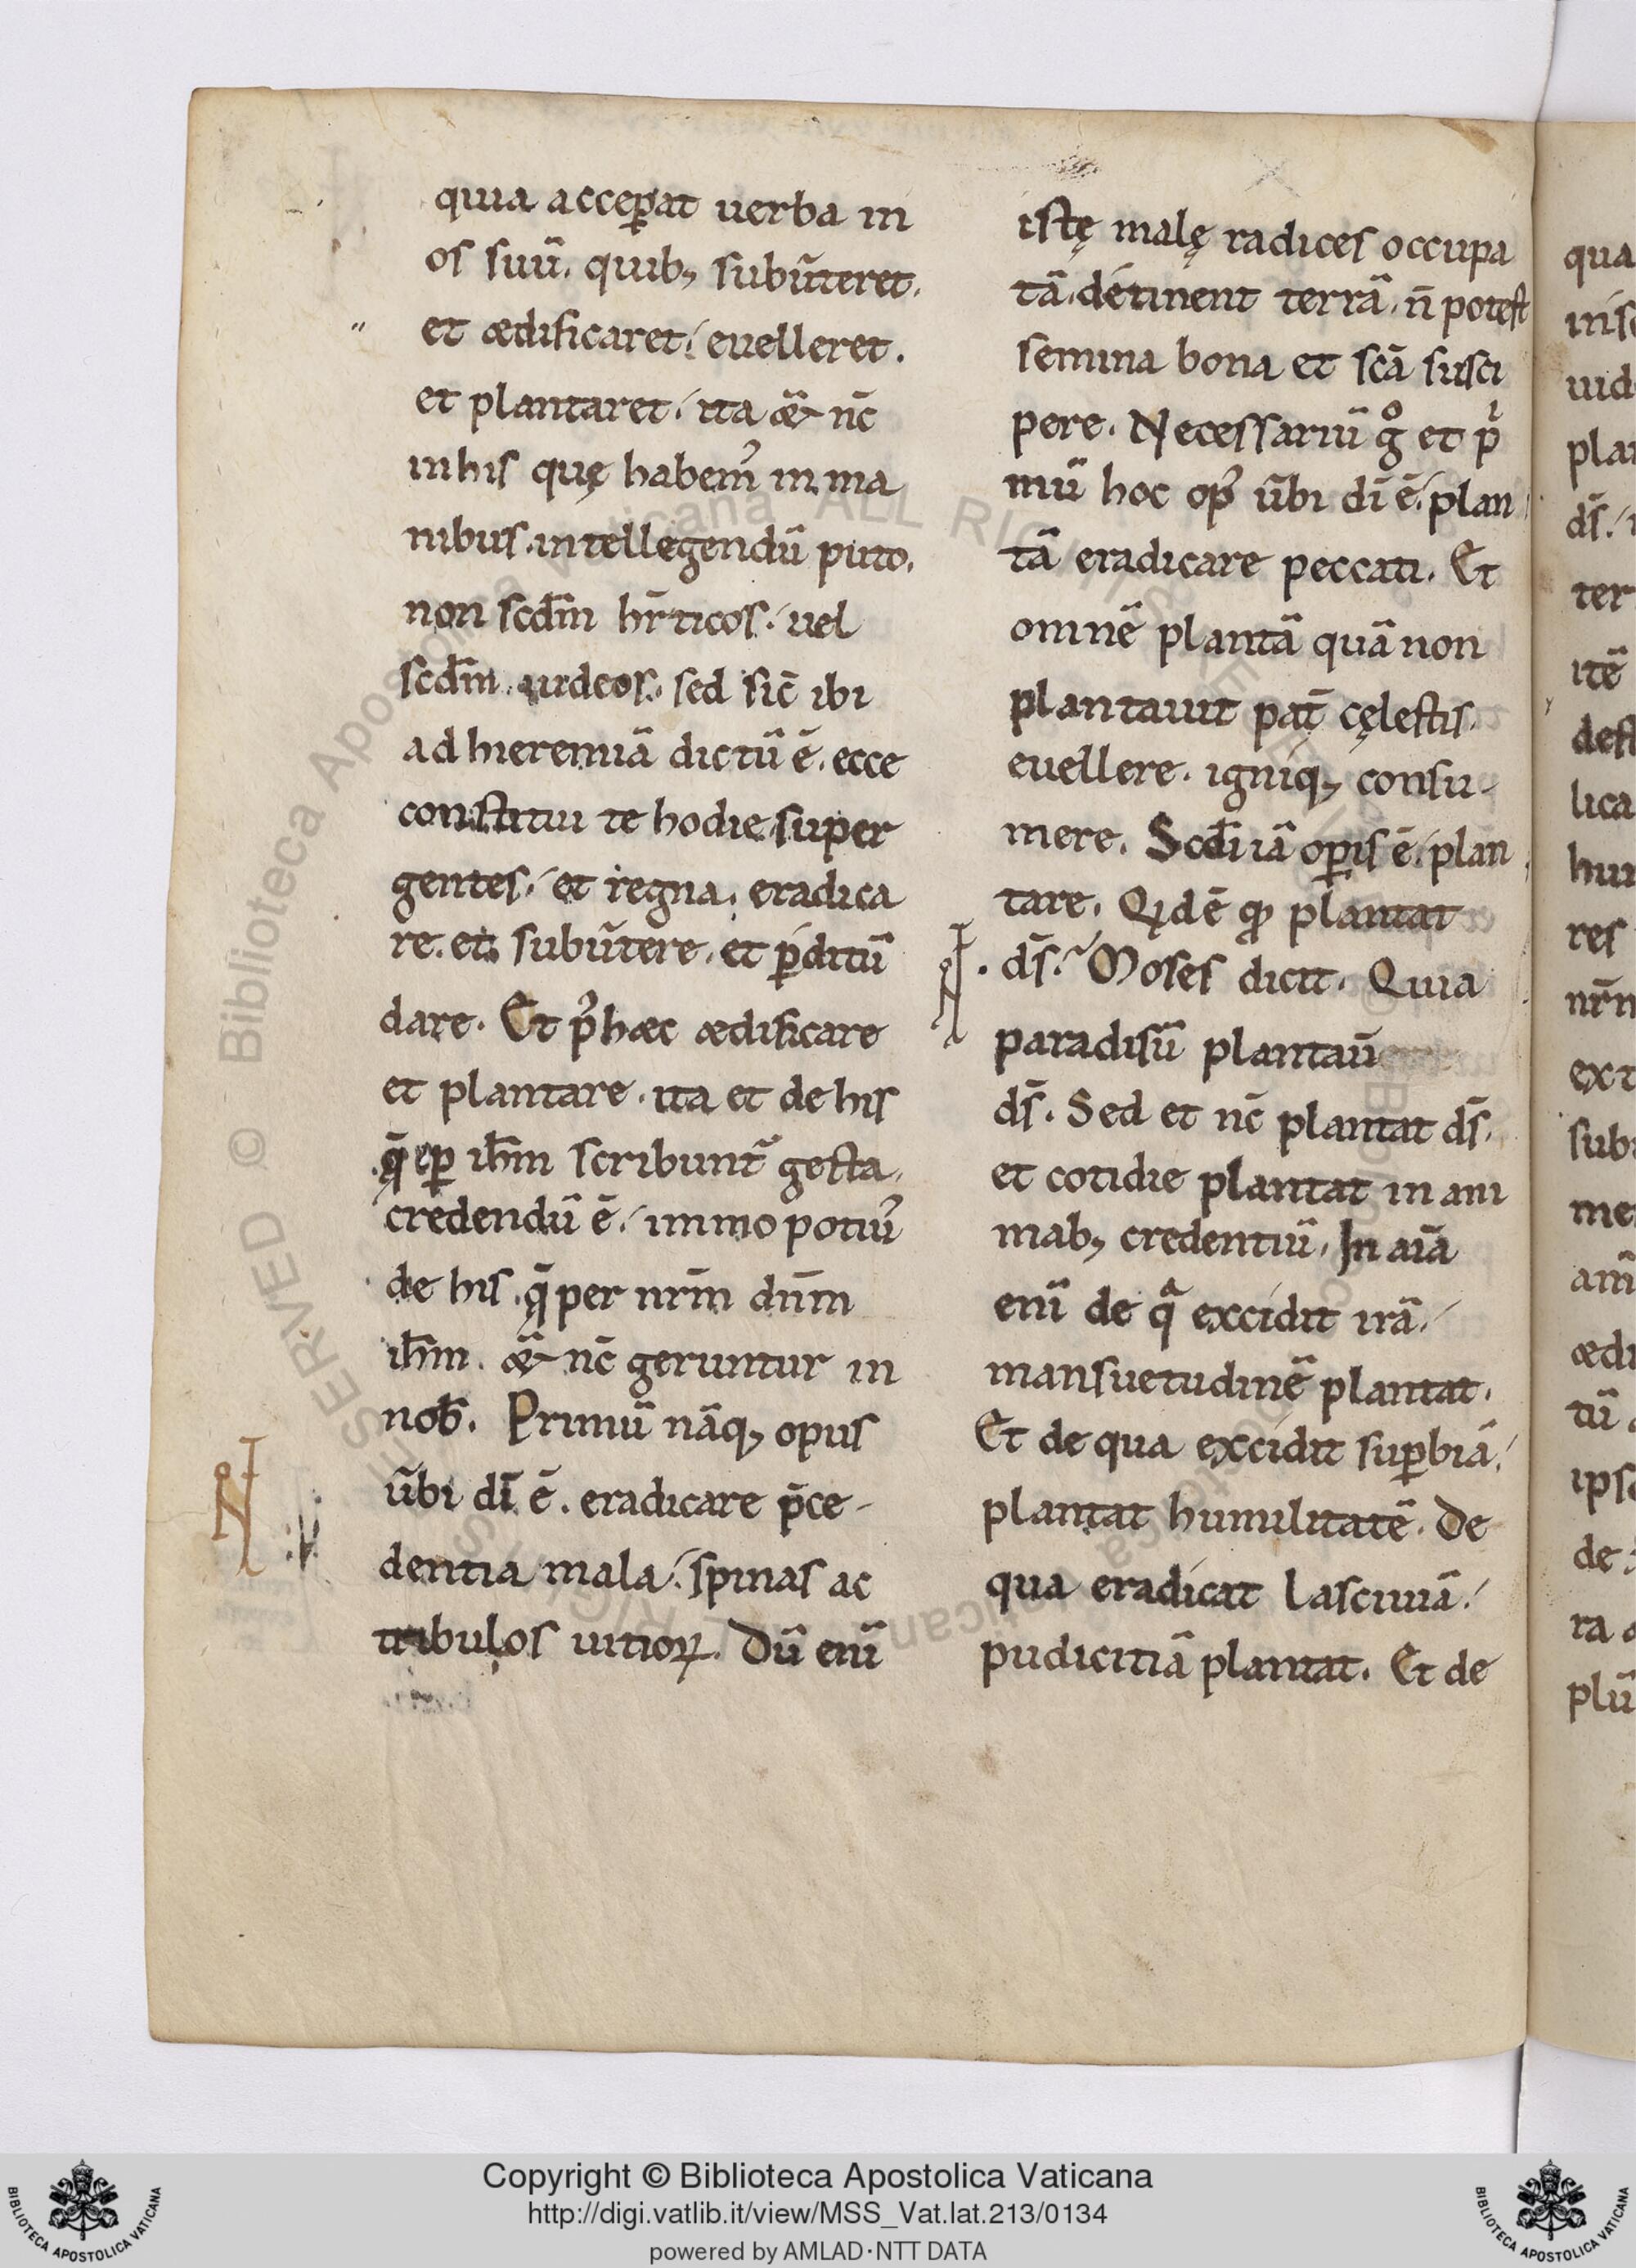 quia acceꝑat uerba in
os suū. quib; subūteret.
et ædificaret. euelleret.
et plantaret. ita æ̃ nc̄
in his quę habem᾽ in ma
nibus. intellegendū puto.
non scdm̄ hr̄ticos. uel
scdm̄. iudeos. sed sic̄ ibi
ad hieremiā dictū ē. ecce
constitui te hodie super
gentes. et regna. eradica
re. et subūtere. et ꝑditū
dare. Et p᾽ hæc ædificare
et plantare. ita et de his
q̄ ꝑ ihm̄ scribunt᷑ gesta.
credendū ē. immo potiu᾽
de his. q̄ per nrm̄ dnm̄
ihm̄. æ̃ nc̄ geruntur in
nob̄. Primū nāq; opus
ūbi dī ē. eradicare p̄ce-
dentia mala. spinas ac
tribulos uitioꝝ. Dū enī
istę malę radices occupa
tā. detinent terrā. n̄ potest
semina bona et scā susci
pere. Necessariū gͦ et pͥ
mū hoc op᾽ ūbi dī ē. plan
tā eradicare peccati. Et
omnē plantā quā non
plantauit pat̄ cęlestis.
euellere. igniq; consu-
mere. Scdī iā oꝑis ē. plan
tare. Qͥd ē qͦ plantat
ds̄. Moses dicit. Quia
paradisū plantaū
ds̄. Sed et nc̄ plantat ds̄.
et cotidie plantat in ani
mab; credentiū. In aiā
enī de qͣ excidit irā.
mansuetudinē plantat.
Et de qua excidit suꝑbiā.
plantat humilitatē. De
qua eradicat lasciuiā.
pudicitiā plantat. Et de
Copyright © Biblioteca Apostolica Vaticana
http://digi.vatlib.it/view/MSS_Vat.lat.213/0134
powered by AMLAD·NTT DATA
BIBLIOTECA APOSTOLICA VATICANA
BIBLIOTECA APOSTOLICA VATICANA